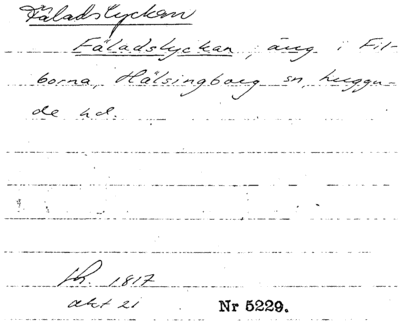 Fäladslyckan
Fäladslyckan, äng i Fil-
borna, Hälsingborg sn, Luggu-
de hd.
1817
akt 21 Nr 5229.